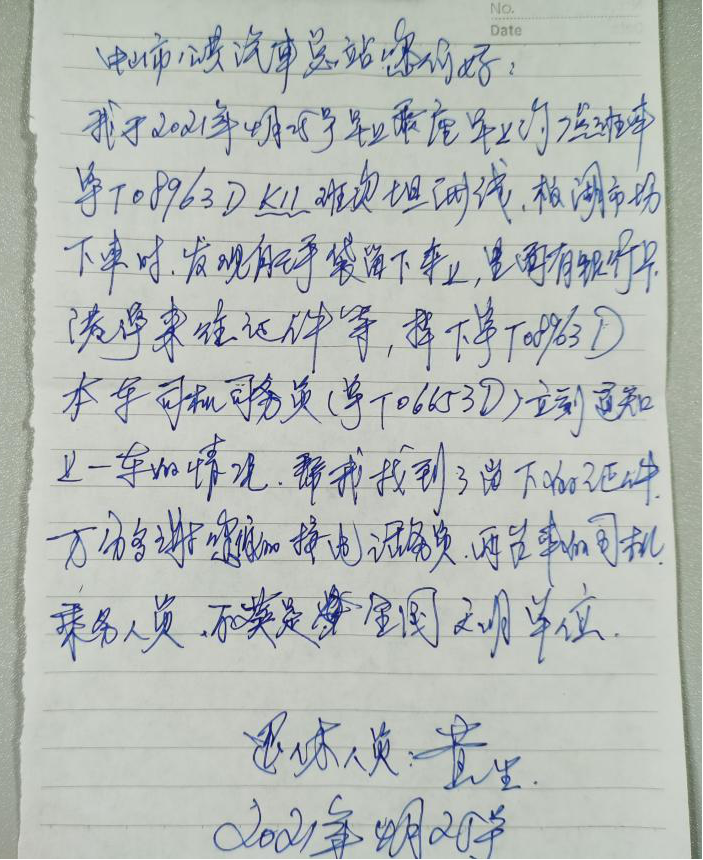 No.
Date
中山市公共汽车总站您们好：
我于2021年4月25号 的 班车
粤T08963D K11班次坦洲线，板湖市场
下车时，发现自己手袋留下车上，里面有银行卡
港澳来往证件等，搭下粤T08963D
本车司机司务员（粤T06653D）立刻通知
上一车的情况，帮我找到了留下的证件，
万分多谢您们的接电话务员，两台车的司机，
乘务人员，不 是 全国文明单位。
退休人员：黄生
2021年4月28